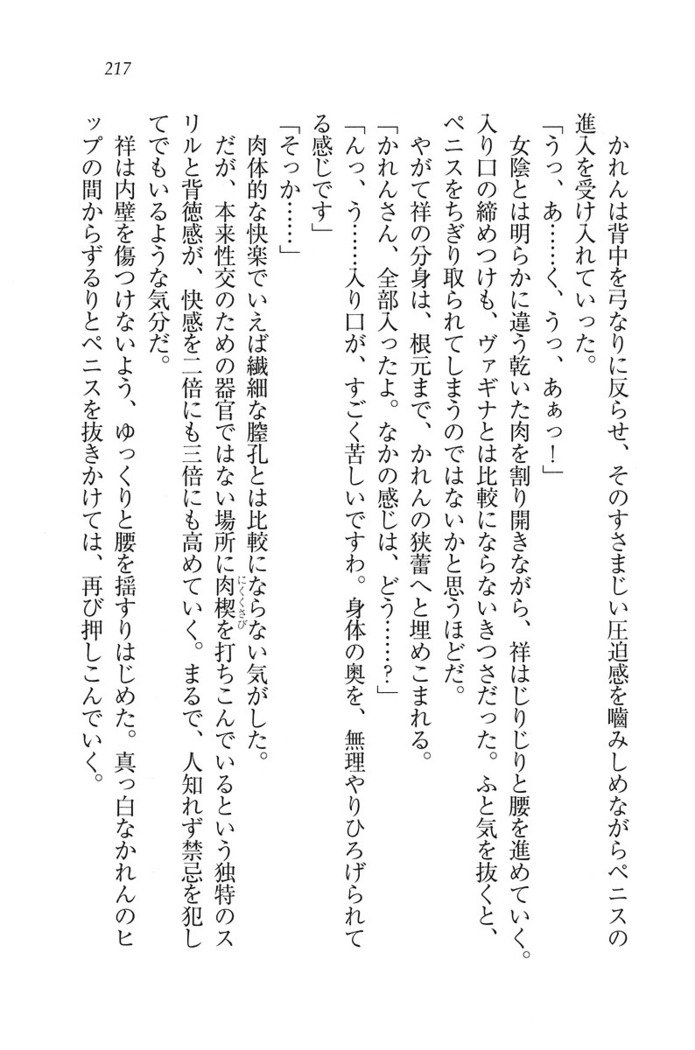 217
かれんは背中を弓なりに反らせ、そのすさまじい圧迫感を噛みしめながらペニスの
進入を受け入れていった。
「うっ、あ……く、うっ、あぁっ！」
女陰とは明らかに違う乾いた肉を割り開きながら、祥はじりじりと腰を進めていく。
入り口の締めつけも、ヴァギナとは比較にならないきつさだった。ふと気を抜くと、
ペニスをちぎり取られてしまうのではないかと思うほどだ。
やがて祥の分身は、根元まで、かれんの狭蕾へと埋めこまれる。
「かれんさん、全部入ったよ。なかの感じは、どう……？」
「んっ、う……入り口が、すごく苦しいですわ。身体の奥を、無理やりひろげられて
る感じです」
「そっか……」
肉体的な快楽でいえば繊細な膣孔とは比較にならない気がした。
だが、本来性交のための器官ではない場所に肉楔を打ちこんでいるという独特のス
にくくさび
リルと背徳感が、快感を二倍にも三倍にも高めていく。まるで、人知れず禁忌を犯し
てでもいるような気分だ。
祥は内壁を傷つけないよう、ゆっくりと腰を揺すりはじめた。真っ白なかれんのヒ
ップの間からずるりとペニスを抜きかけては、再び押しこんでいく。